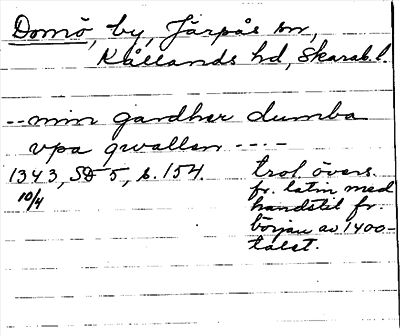 Domö, by, Järpås sn,
Kållands hd, Skarab.l.
-- min gardher dumba
vpa qwallen ----
1343, SD 5, s. 154.
10/4
trol. övers.
fr. latin med
handstil fr.
början av 1400-
talet.